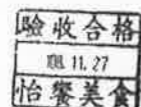 驗收合格
11.27
怡饗美食